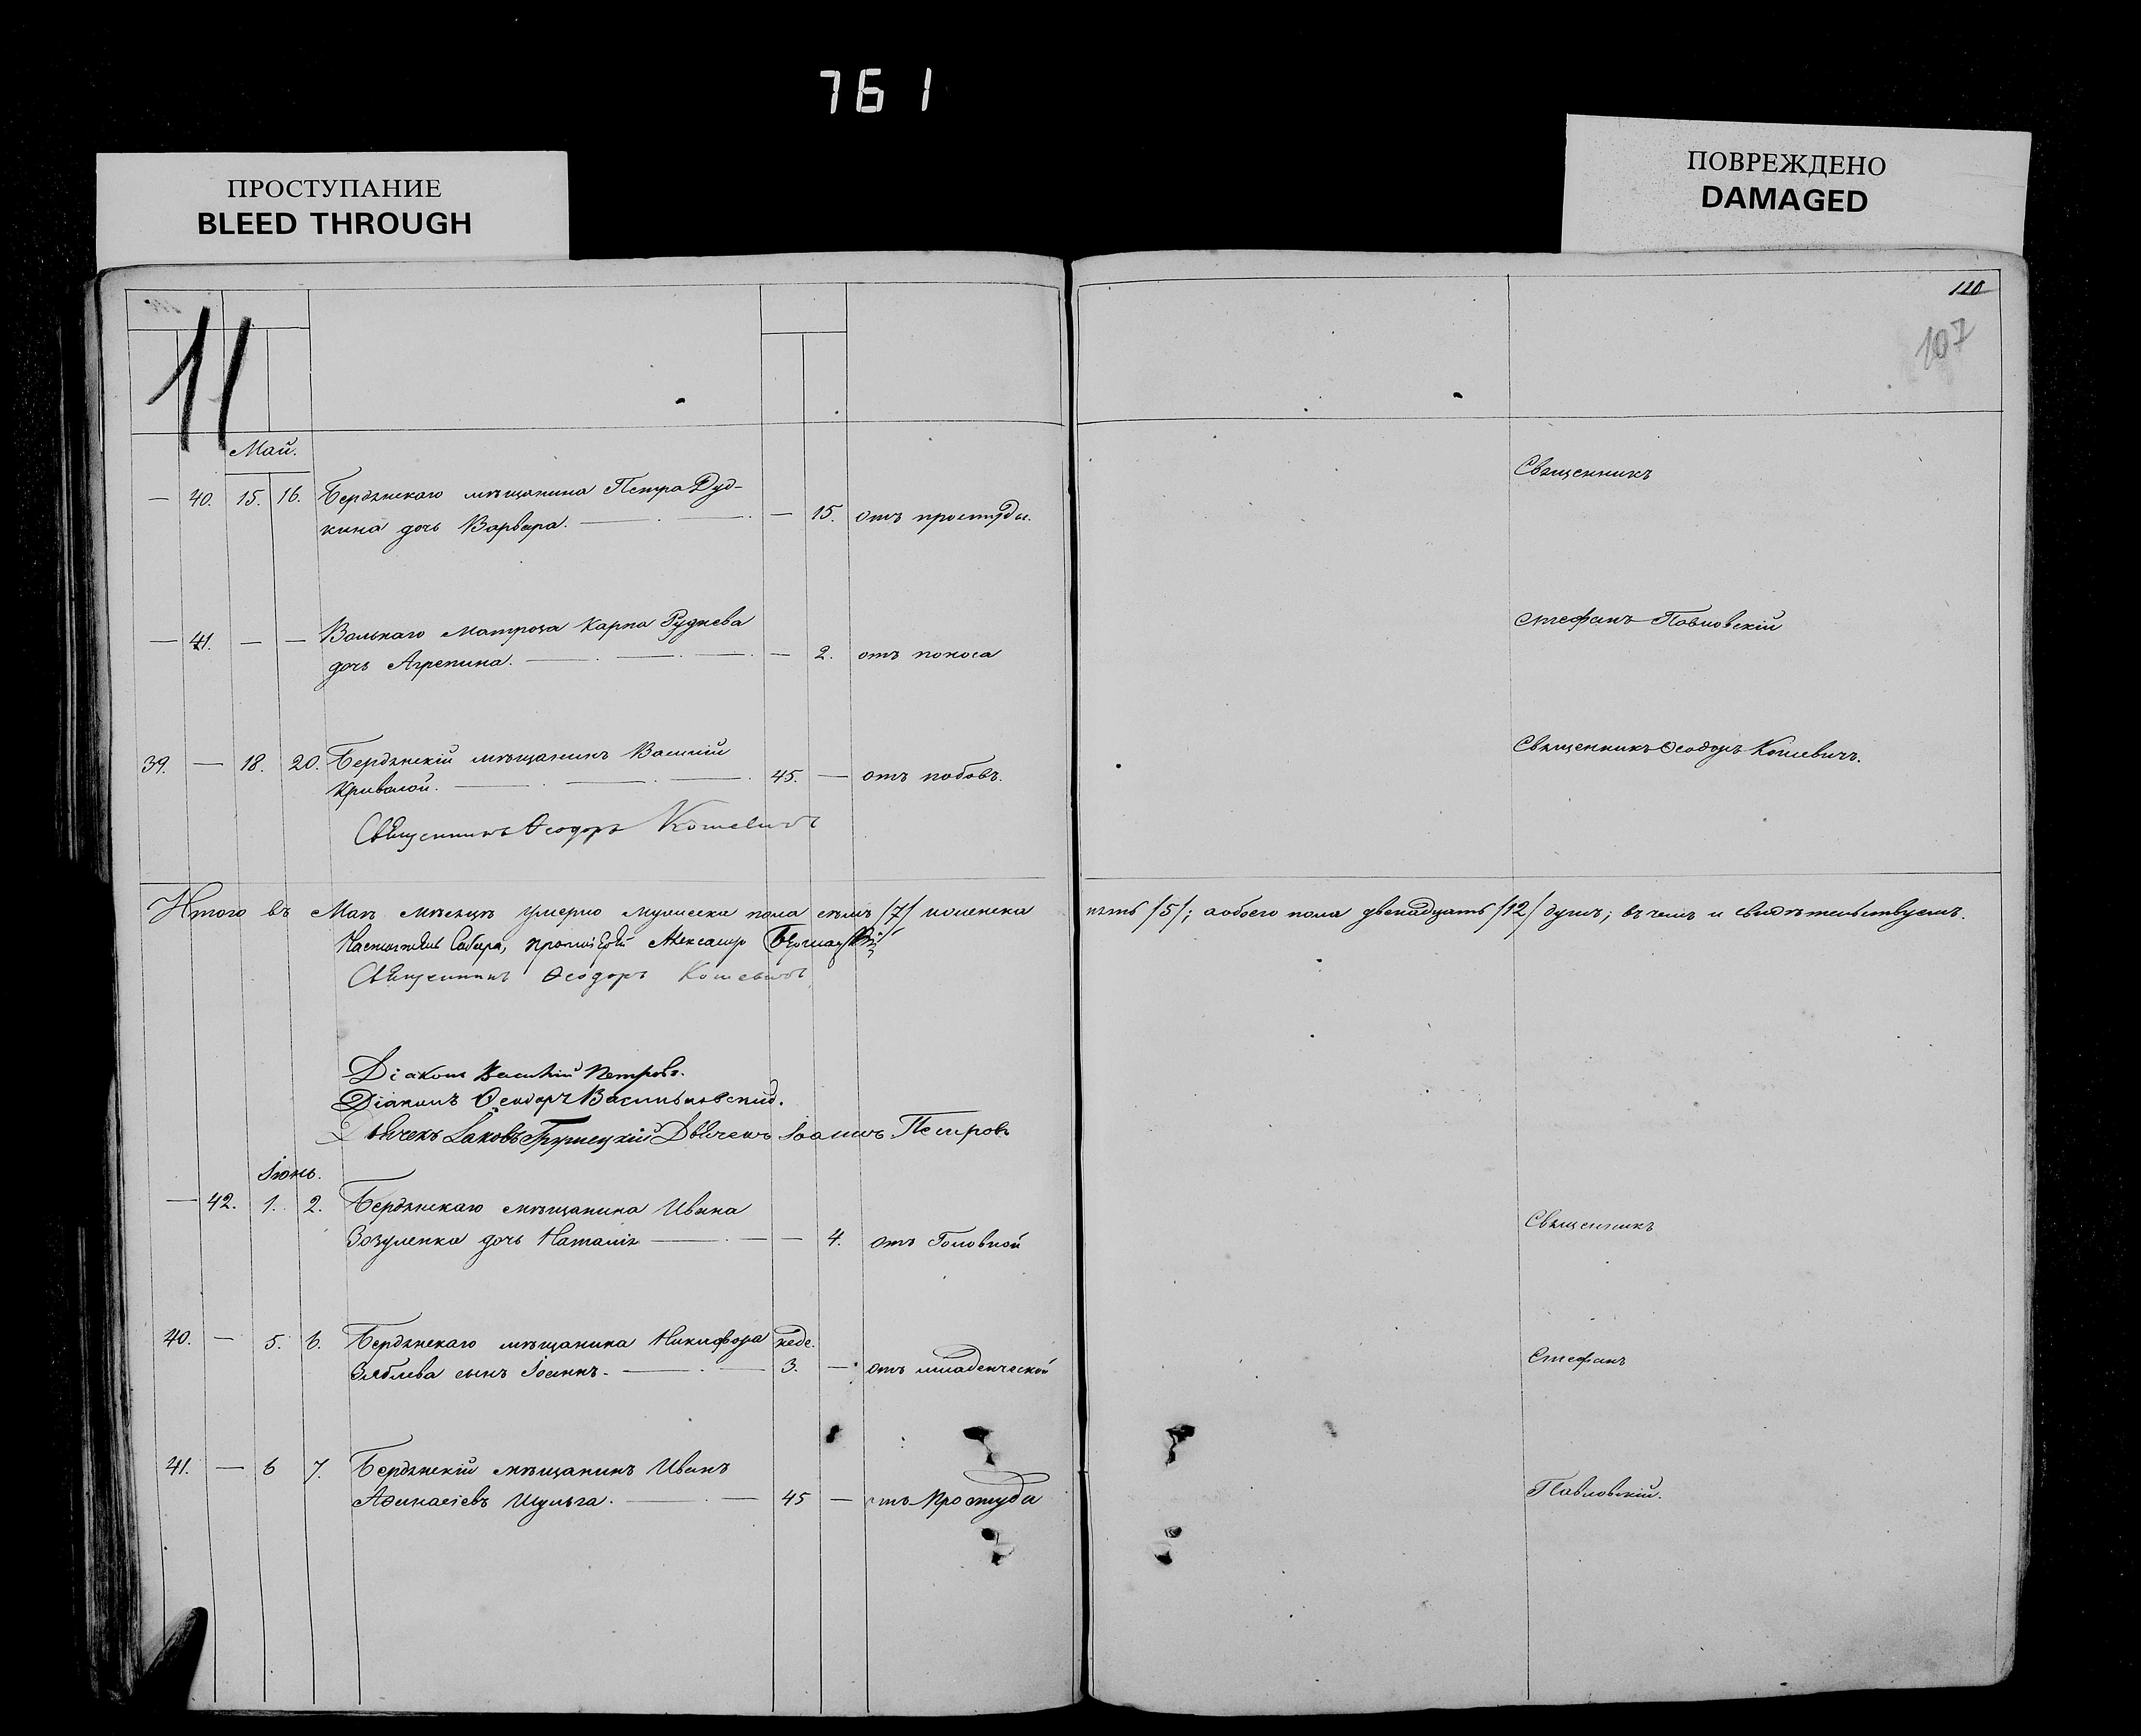 761
ПРОСТУПАНИЕ
BLEED THROUGH
ПОВРЕЖДЕНО
DAMAGED
11
110
107
Май.
— 40. 15. 16. Бердянскаго мѣщанина Петра Дуд-
кина дочь Варвара. — 15. отъ простуды.
Священникъ
— 41. — — Вольнаго матроса Карпа Руднева
дочь Агрепина. — 2. отъ поноса
Стефанъ Павловскій
39. — 18. 20. Бердянскій мѣщанинъ Василій
Кривалой. 45. — отъ побовъ.
Священникъ Ѳеодоръ Кошевичъ.
Священникъ Ѳеодоръ Кошевичъ
Итого въ Маѣ мѣсяцѣ умерло мужеска пола семь /7/ женска пять /5/; а обоего пола двенадцать /12/ душъ; въ чемъ и свидѣтельствуемъ.
Настоятель Собора, протоіерей Александр
Священникъ Ѳеодоръ Кошевичъ
Діаконъ Василій Петровъ.
Діаконъ Ѳеодоръ Васильковскій.
Дьячекъ Іаковъ Дьячекъ Іоаннъ Петровъ
Іюнь.
— 42. 1. 2. Бердянскаго мѣщанина Ивана
Зозуленка дочь Наталія — — 4. отъ Головной
Священникъ
40. — 5. 6. Бердянскаго мѣщанина Никифора неде.
Зяблева сынъ Іоаннъ. — 3. — отъ младенческой
Стефанъ
41. — 6 7. Бердянскій мѣщанинъ Иванъ
Афанасіевъ Шульга. — 45 — отъ Простуды
Павловскій.